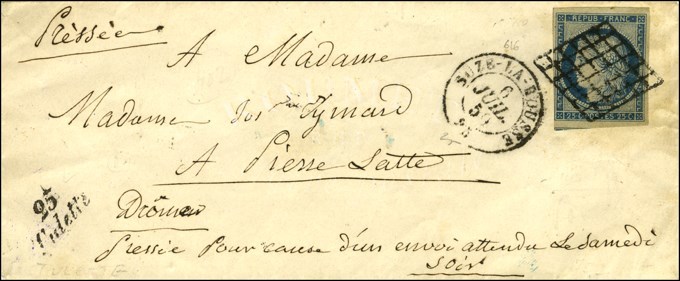 Prèssée
616
REPUB. FRANC.
A Madame
SUZE-LA-ROUSSE
6
JUIL.
50
25 C. POSTES 25 C.
Madame Eymard
A Pierre Latte
25
Drôme
Pressée pour cause d'un envoi attendu Le Samedi
Soir